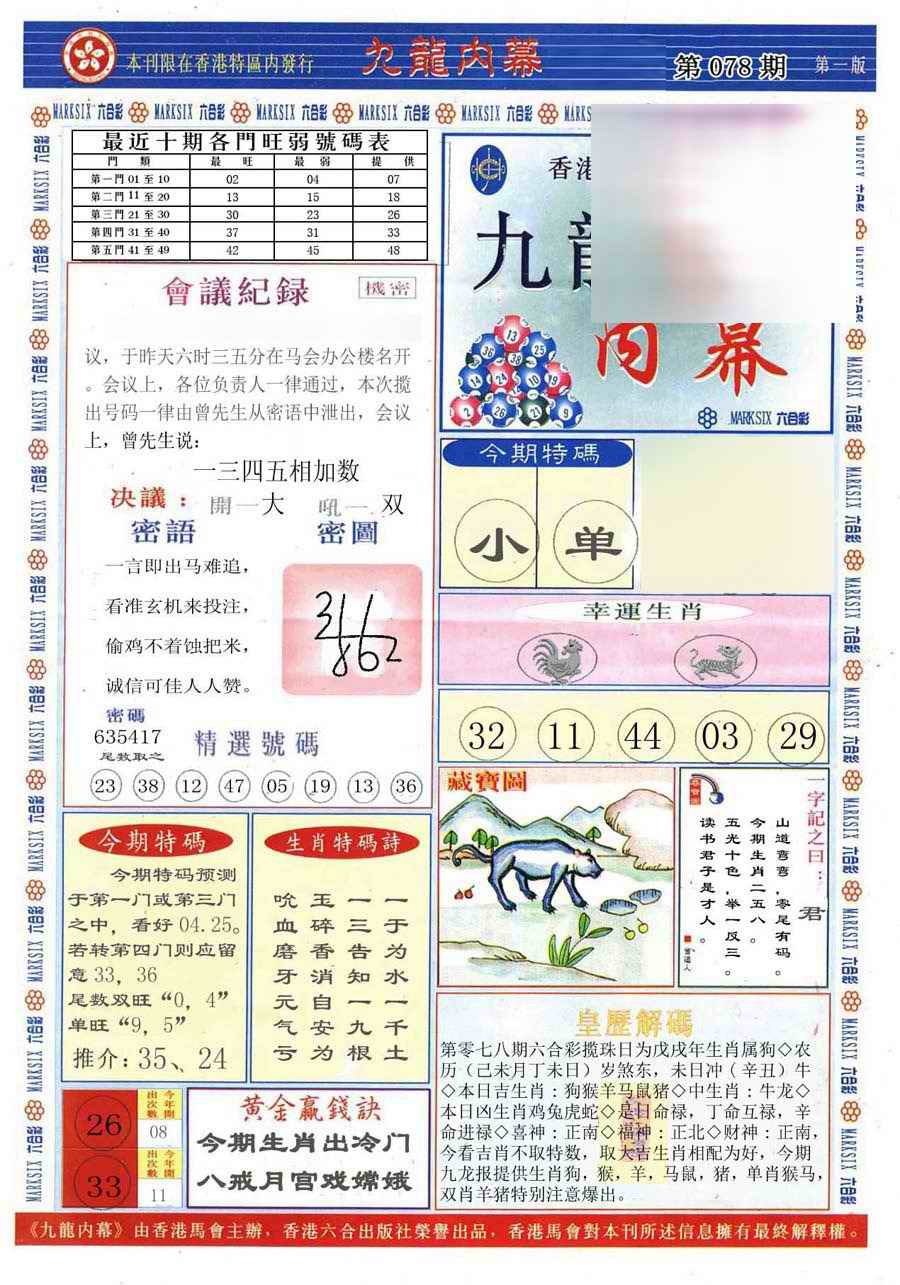 本刊限在香港特區内發行
九龍内幕
第 078 期
第一版
MARKSIX 六合彩 MARKSIX 六合彩 MARKSIX 六合彩 MARKSIX 六合彩 MARKSIX 六合彩 MARKS
最近十期各門旺弱號碼表
門 類 最 旺 最 弱 提 供
第一門 01 至 10 02 04 07
第二門 11 至 20 13 15 18
第三門 21 至 30 30 23 26
第四門 31 至 40 37 31 33
第五門 41 至 49 42 45 48
會議紀録
機密
议，于昨天六时三五分在马会办公楼名开
。会议上，各位负责人一律通过，本次揽
出号码一律由曾先生从密语中泄出，会议
上，曾先生说：
一三四五相加数
决議： 開一大 吼一 双
密語 密圖
一言即出马难追，
看准玄机来投注，
偷鸡不着蚀把米，
诚信可佳人人赞。
密碼
635417
尾数取之
精選號碼
23 38 12 47 05 19 13 36
香港
九
内幕
13
36 38 25
14 24 10 19
2 26 27 9
MARKSIX 六合彩
今期特碼
小 单
幸運生肖
32 11 44 03 29
藏寶圖
一字記之曰：君
山道弯弯，零尾有码。
今期生肖二五八。
五光十色，举一反三。
读书君子是才人。
今期特碼
今期特码预测
于第一门或第三门
之中，看好 04.25。
若转第四门则应留
意 33，36
尾数双旺“0，4”
单旺“9，5”
推介：35、24
生肖特碼詩
吮 玉 一 一
血 碎 三 于
磨 香 告 为
牙 消 知 水
元 自 一 一
气 安 九 千
亏 为 根 土
26
今年開出次數
08
33
今年開出次數
11
黄金贏錢訣
今期生肖出冷门
八戒月宫戏嫦娥
皇歷解碼
第零七八期六合彩揽珠日为戊戌年生肖属狗◇农
历（己未月丁未日）岁煞东，未日冲（辛丑）牛
◇本日吉生肖：狗猴羊马鼠猪◇中生肖：牛龙◇
本日凶生肖鸡兔虎蛇◇是日命禄，丁命互禄，辛
命进禄◇喜神：正南◇福神：正北◇财神：正南，
今看吉肖不取特数，取大吉生肖相配为好，今期
九龙报提供生肖狗，猴，羊，马鼠，猪，单肖猴马，
双肖羊猪特别注意爆出。
《九龍内幕》由香港馬會主辦，香港六合出版社榮譽出品，香港馬會對本刊所述信息擁有最終解釋權。